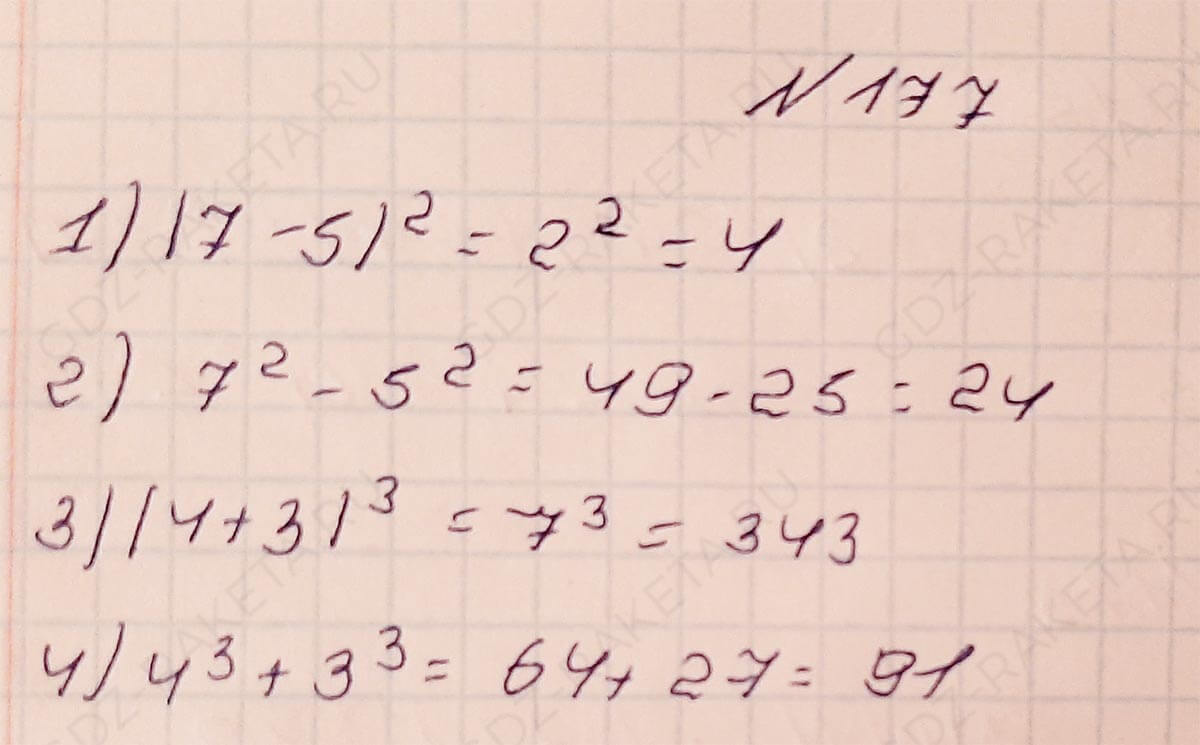 № 177
1) (7 - 5)² = 2² = 4
2) 7² - 5² = 49 - 25 = 24
3) (4 + 3)³ = 7³ = 343
4) 4³ + 3³ = 64 + 27 = 91
GDZ-RAKETA.RU